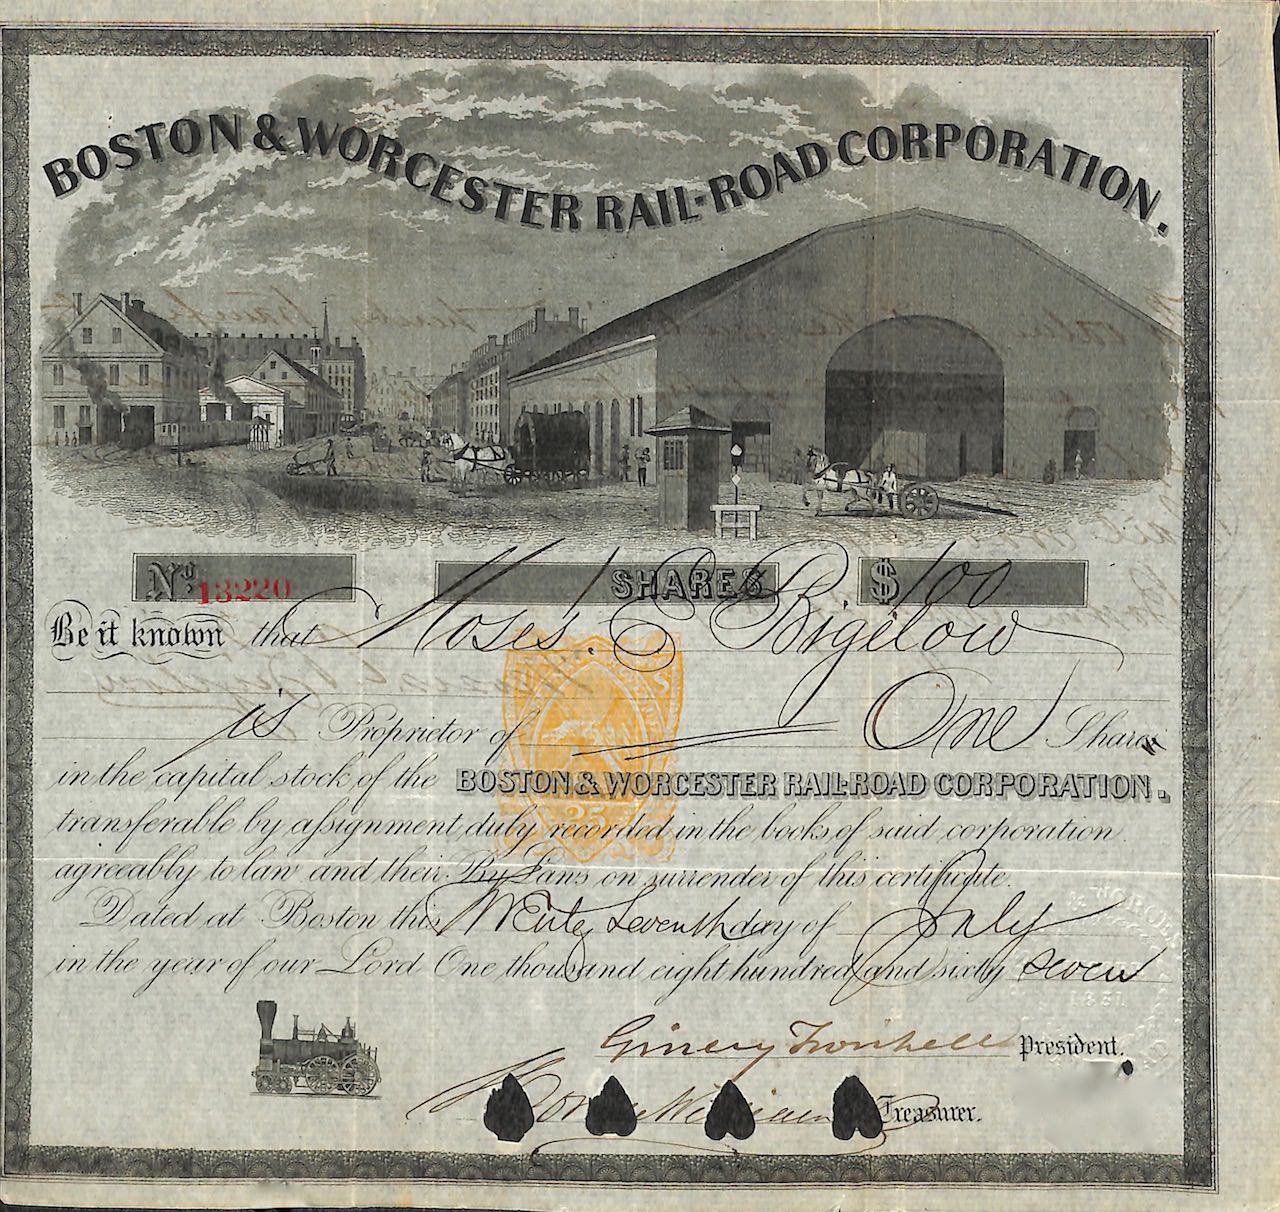 BOSTON & WORCESTER RAIL-ROAD CORPORATION.
No. 13220 SHARES $100
Be it known that Moses. E Bigelow
is Proprietor of One Share
in the capital stock of the BOSTON & WORCESTER RAIL-ROAD CORPORATION.
transferable by assignment duly recorded in the books of said corporation
agreeably to law and their By Laws on surrender of this certificate.
Dated at Boston this Twenty Seventh day of July
in the year of our Lord One thousand eight hundred and sixty seven
Ginery Twichell President.
Treasurer.
25
1831